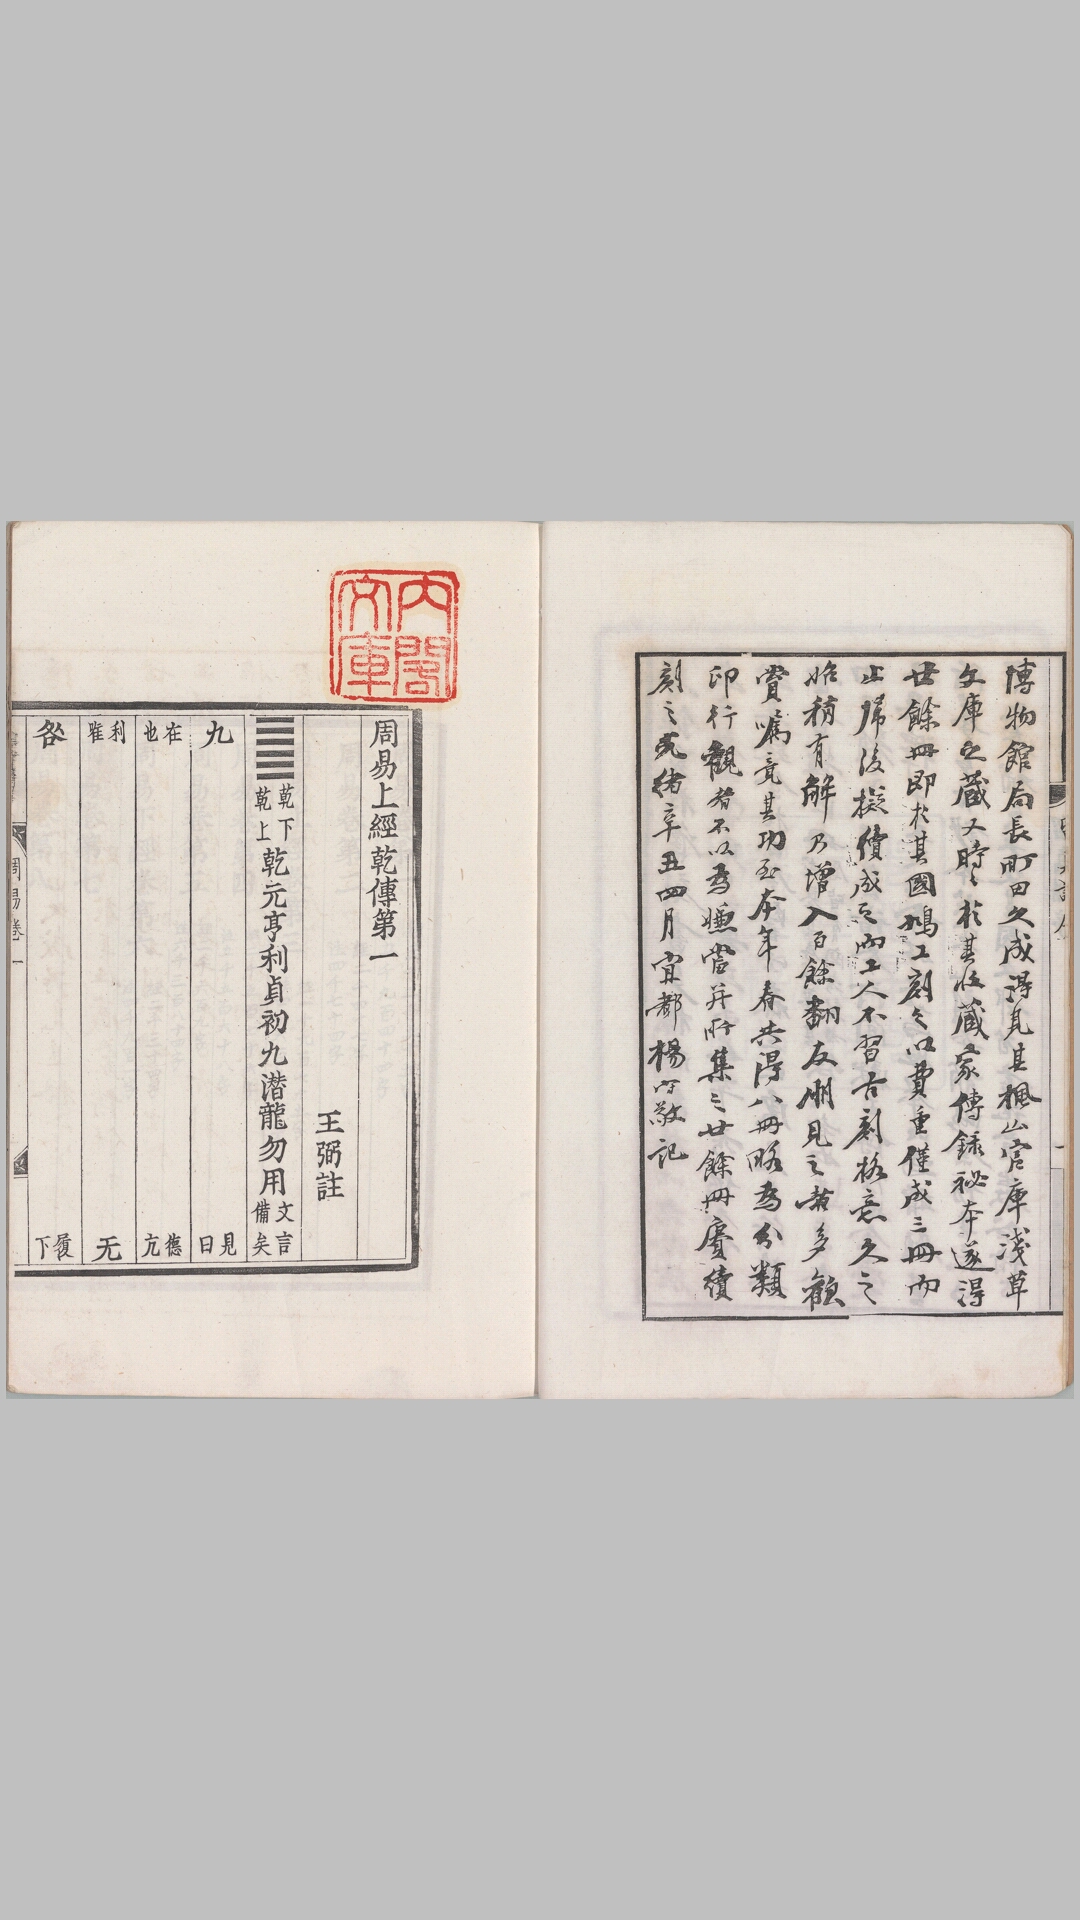 博物館局長町田久成得見其楓山官庫淺草
文庫之藏又時時於其收藏家傳錄祕本遂得
廿餘冊即於其國鳩工刻之以費重僅成三冊而
止歸後擬續成之而工人不習古刻格意久之
始稍有解乃增入百餘翻友朋見之者多觀
賞囑竟其功至本年春共得八冊略為分類
印行觀者不以為嫌當并所集之廿餘冊賡續
刻之光緒辛丑四月宜都楊守敬記
內閣
文庫
周易上經乾傳第一
王弼註
乾下
乾上
乾元亨利貞初九潛龍勿用
文言
備矣
九
見
日
在
也
德
亢
利
雎
无
咎
履
下
周易卷一